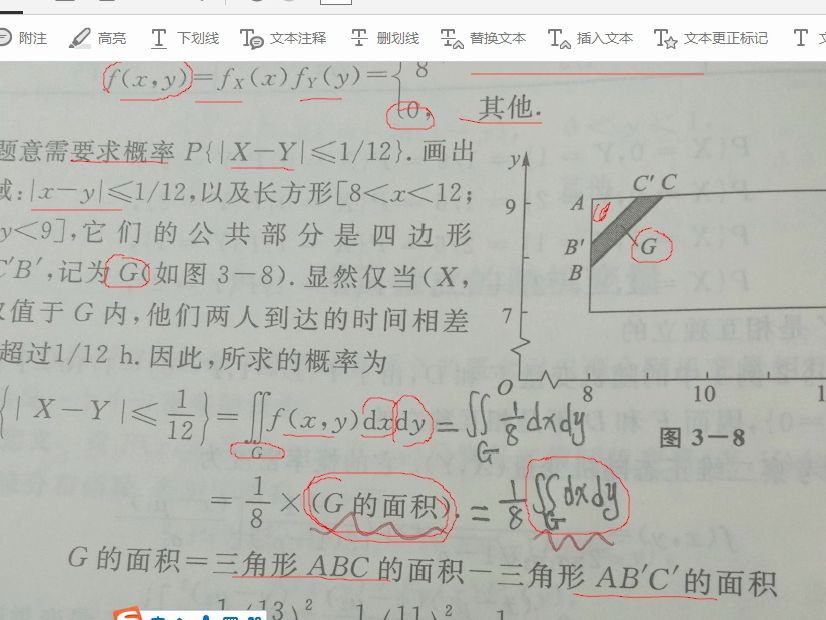 附注 高亮 下划线 文本注释 删划线 替换文本 插入文本 文本更正标记
f(x,y)=f_X(x)f_Y(y)={ 8
0, 其他.
题意需要求概率 P{|X-Y|≤1/12}. 画出
域:|x-y|≤1/12,以及长方形[8<x<12;
y<9],它们的公共部分是四边形
C'B',记为G(如图3-8). 显然仅当(X,
取值于G内,他们两人到达的时间相差
超过1/12 h. 因此,所求的概率为
y
9
7
A
B'
B
C' C
G
O 8 10 1
图 3-8
{|X-Y|≤1/12}=∬_G f(x,y)dxdy=∬_G 1/8 dxdy
=1/8×(G的面积).=1/8∬_G dxdy
G的面积=三角形ABC的面积-三角形AB'C'的面积
1 (13)² 1 (11)² 1